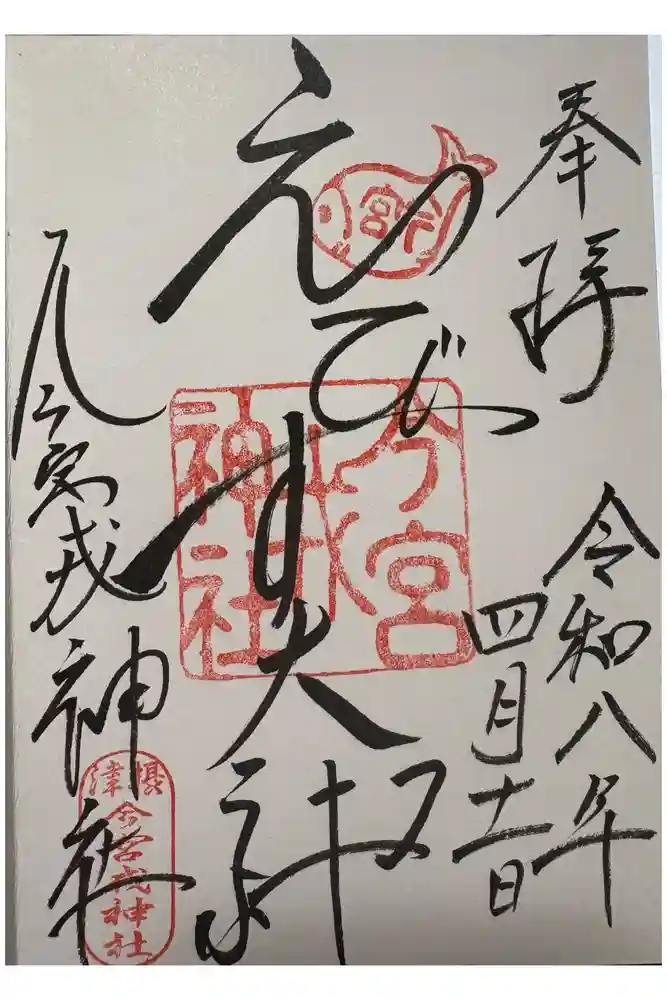 奉拝
令和八年
四月十一日
えびす大
今宮戎神社
今宮
今宮戎神社
摂津
今宮戎神社